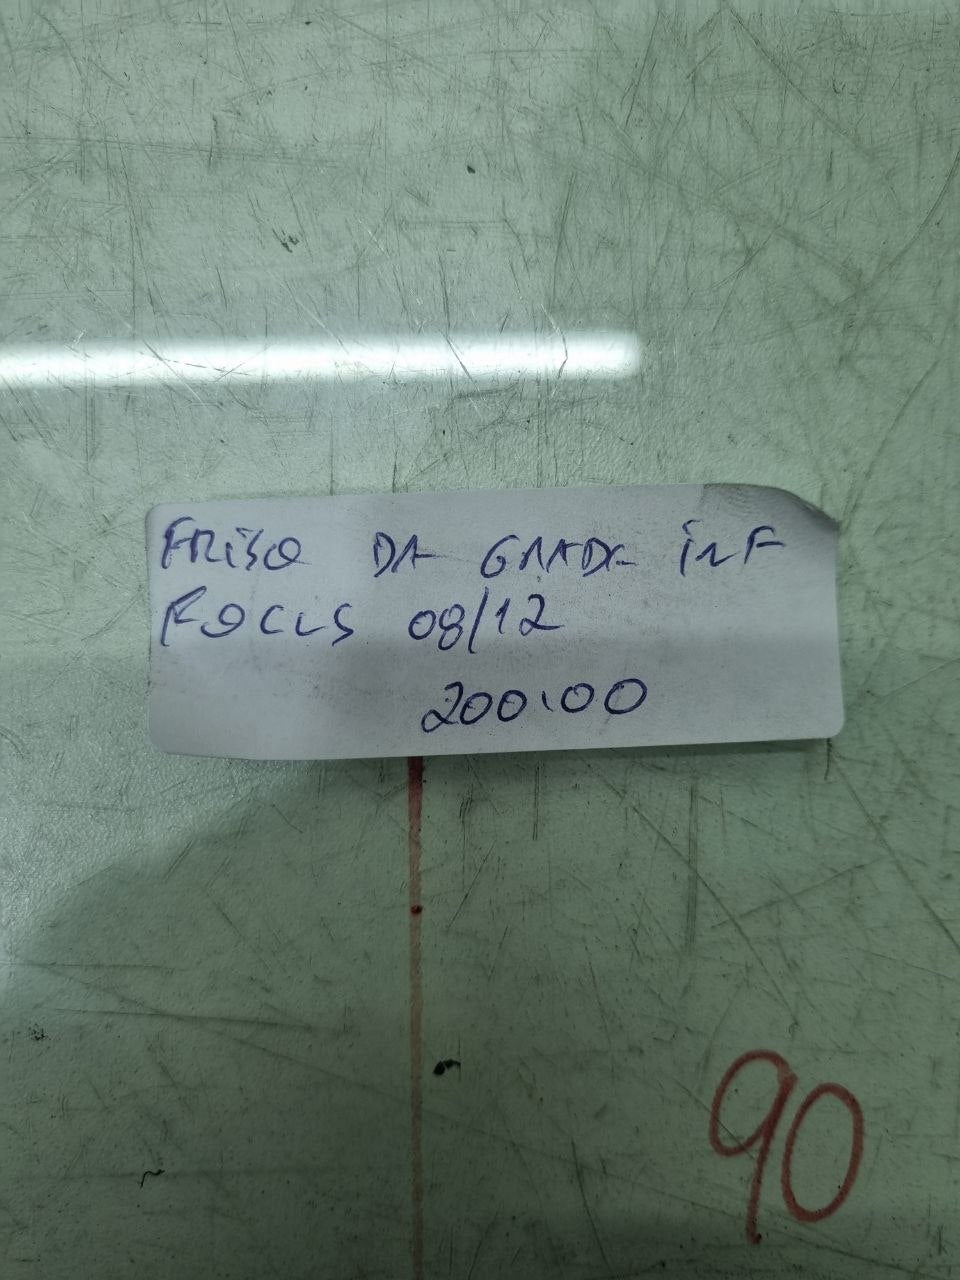 FRISO DA GRADE INF
FOCUS 08/12
200.00
90